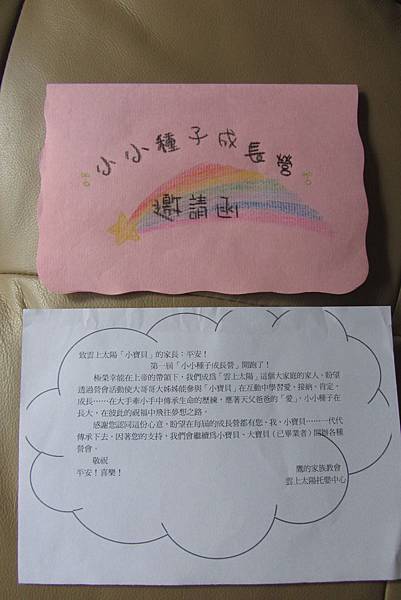 小小種子成長營
邀請函
致雲上太陽「小寶貝」的家長：平安！
第一屆「小小種子成長營」開跑了！
極榮幸能在上帝的帶領下，我們成為「雲上太陽」這個大家庭的家人，盼望
透過營會活動使大哥哥大姊姊能參與「小寶貝」在互動中學習愛、接納、肯定、
成長……在大手牽小手中傳承生命的歷練，應著天父爸爸的「愛」，小小種子在
長大，在彼此的祝福中飛往夢想之路。
感謝您認同這份心意，盼望在每屆的成長營都有您、我、小寶貝……一代代
傳承下去。因著您的支持，我們會繼續為小寶貝、大寶貝（已畢業者）開辦各種
營會。
敬祝
平安！喜樂！
鷹的家族教會
雲上太陽托嬰中心